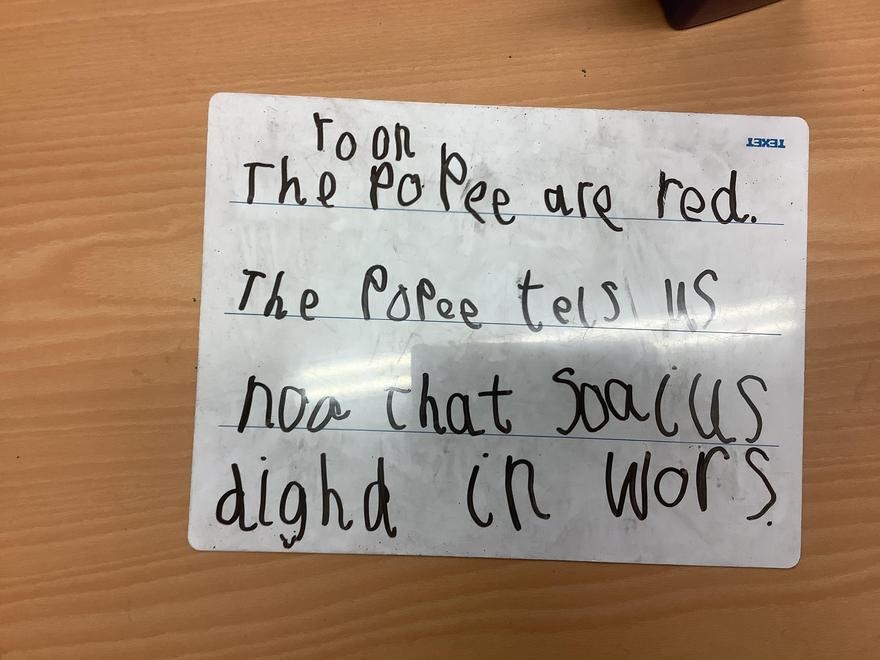 TEXET
roon
The Popee are red.
The Popee tels us
noa that soaius
dighd in wors.